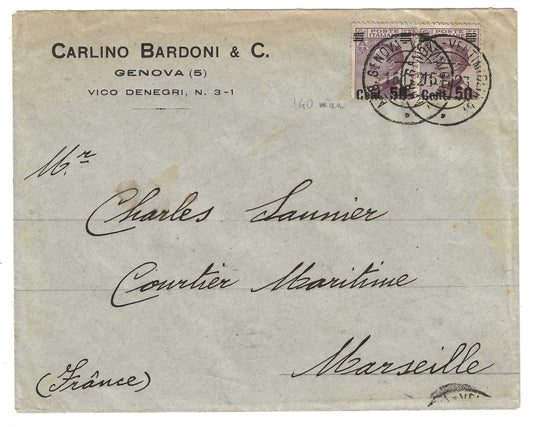 CARLINO BARDONI & C.
GENOVA (5)
VICO DENEGRI, N. 3-1
POSTE ITALIANE
Cent. 50 Cent. 50
GENOVA
Mr
Charles Saunier
Courtier Maritime
Marseille
(Frânce)